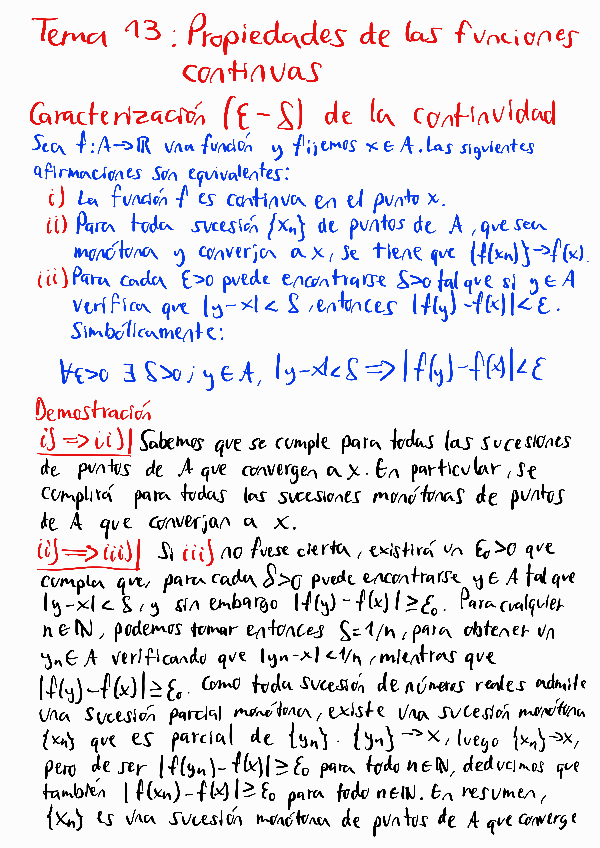 Tema 13: Propiedades de las funciones
continuas
Caracterización (ε-δ) de la continuidad
Sea f: A→ℝ una función y fijemos x ∈ A. Las siguientes
afirmaciones son equivalentes:
i) La función f es continua en el punto x.
ii) Para toda sucesión {xn} de puntos de A, que sea
monótona y converja a x, se tiene que {f(xn)}→f(x).
iii) Para cada ε>0 puede encontrarse δ>0 tal que si y ∈ A
verifica que |y-x| < δ, entonces |f(y)-f(x)|<ε.
Simbólicamente:
∀ε>0 ∃ δ>0; y ∈ A, |y-x|<δ ⟹ |f(y)-f(x)|<ε
Demostración
i) ⟹ ii)| Sabemos que se cumple para todas las sucesiones
de puntos de A que convergen a x. En particular, se
cumplirá para todas las sucesiones monótonas de puntos
de A que converjan a x.
ii) ⟹ iii)| Si iii) no fuese cierta, existirá un ε₀>0 que
cumpla que, para cada δ>0 puede encontrarse y ∈ A tal que
|y-x| < δ, y sin embargo |f(y)-f(x)| ≥ ε₀. Para cualquier
n ∈ ℕ, podemos tomar entonces δ=1/n, para obtener un
yn ∈ A verificando que |yn-x|<1/n, mientras que
|f(y)-f(x)| ≥ ε₀. Como toda sucesión de números reales admite
una sucesión parcial monótona, existe una sucesión monótona
{xn} que es parcial de {yn}. {yn}→x, luego {xn}→x,
pero de ser |f(yn)-f(x)| ≥ ε₀ para todo n ∈ ℕ, deducimos que
también |f(xn)-f(x)| ≥ ε₀ para todo n ∈ ℕ. En resumen,
{xn} es una sucesión monótona de puntos de A que converge